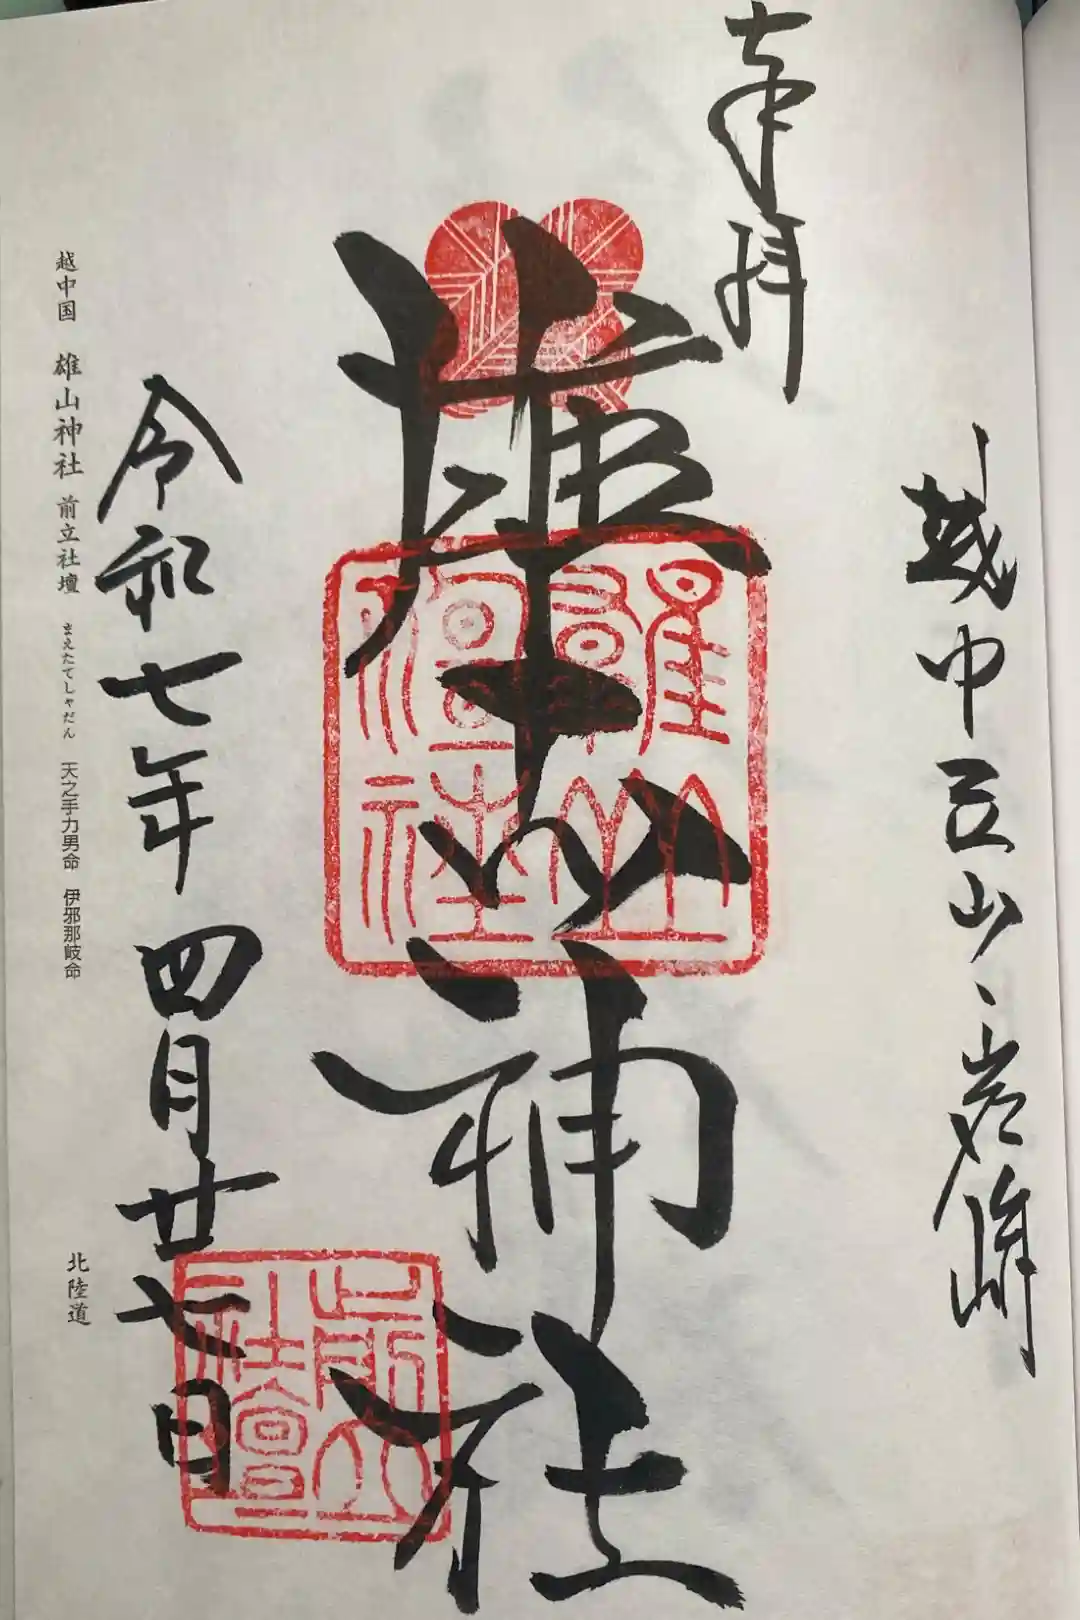 越中立山、岩峅
奉拝
雄山神社
雄山神社
令和七年四月廿七日
前立社壇
越中国 雄山神社 前立社壇 まえたてしゃだん 天之手力男命 伊邪那岐命 北陸道